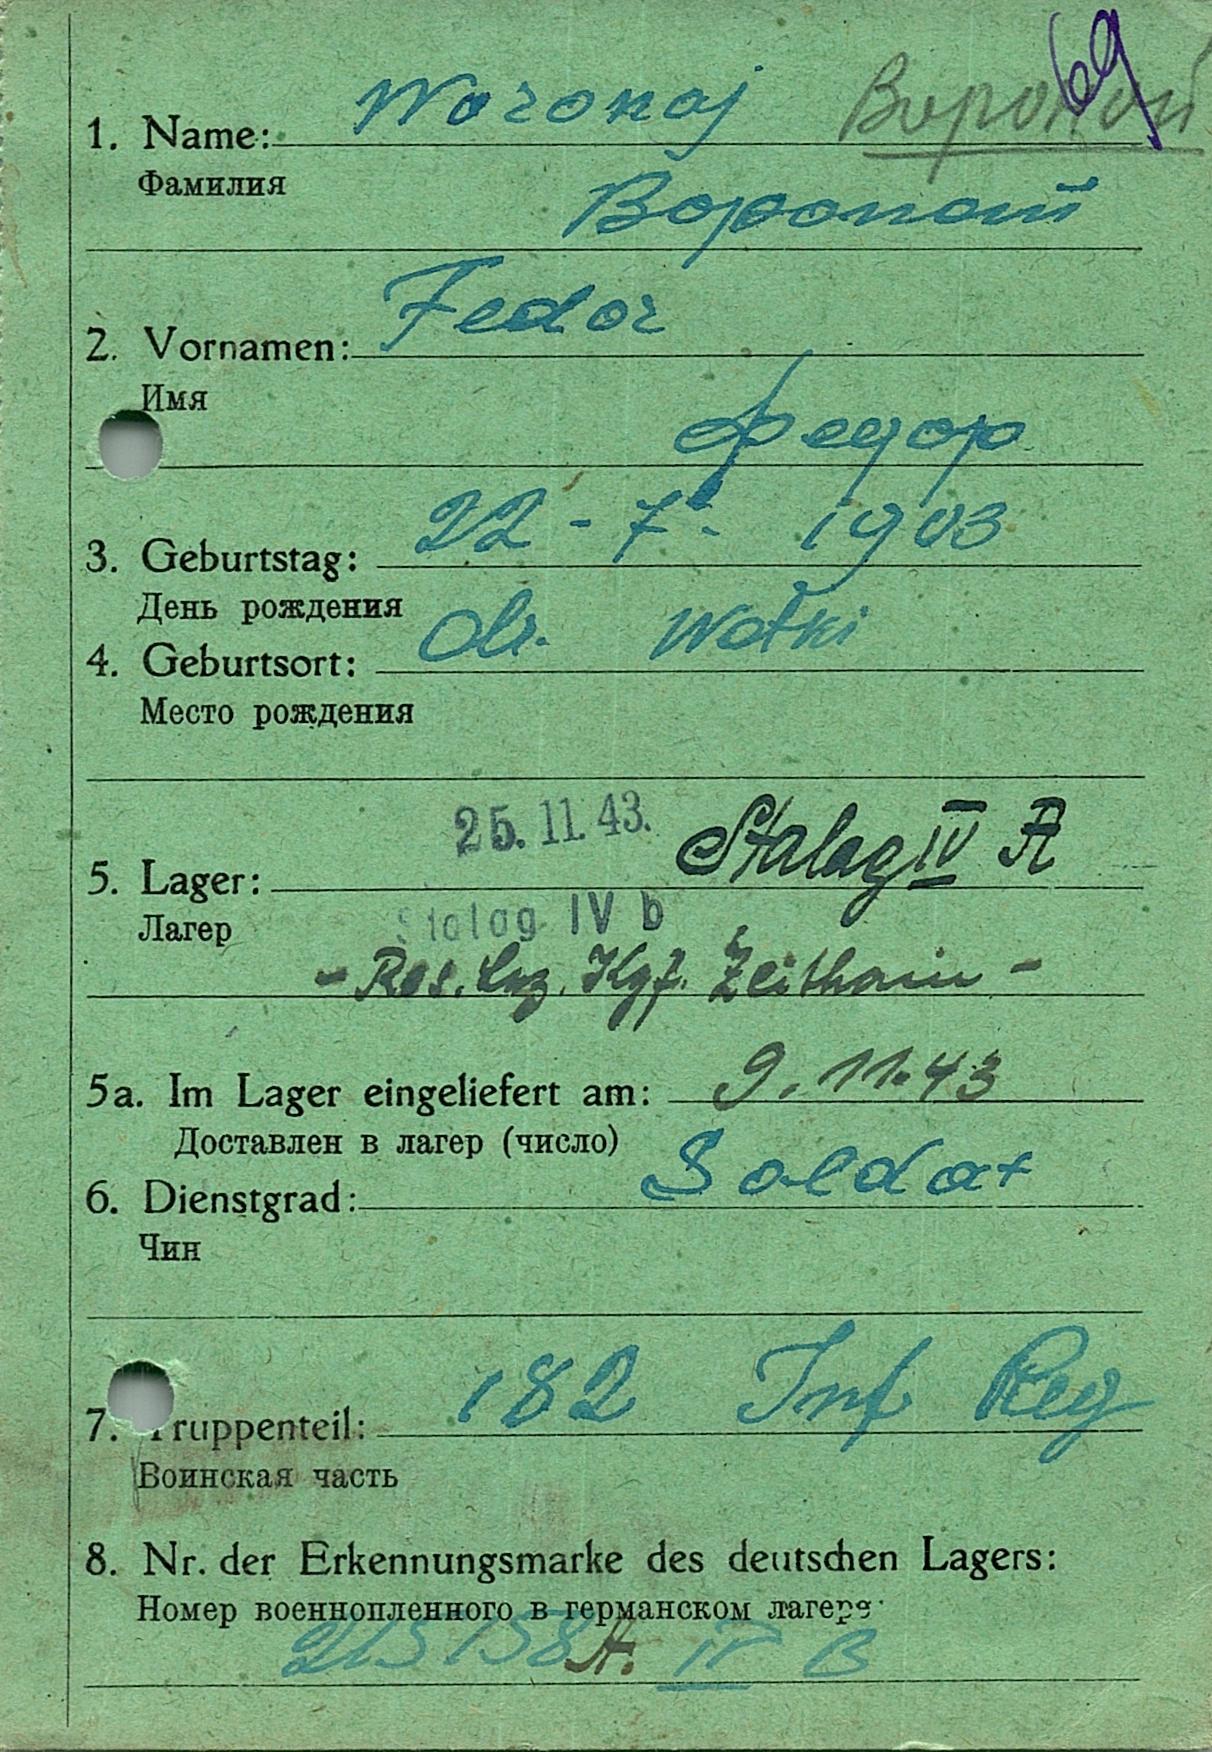 69
1. Name: Woronoj Вороной
Фамилия
Вороной
2. Vornamen: Fedor
Имя
Федор
3. Geburtstag: 22 - 7 - 1903
День рождения
4. Geburtsort: Wotki
Место рождения
25.11.43. Stalag IV A
5. Lager:
Лагер
Stalag IV b
- Res. Laz. Kgf. Zeithain -
5a. Im Lager eingeliefert am: 9.11.43
Доставлен в лагер (число)
6. Dienstgrad: Soldat
Чин
7. Truppenteil: 182 Inf Reg
Воинская часть
8. Nr. der Erkennungsmarke des deutschen Lagers:
Номер военнопленного в германском лагере:
215158 A. IV B